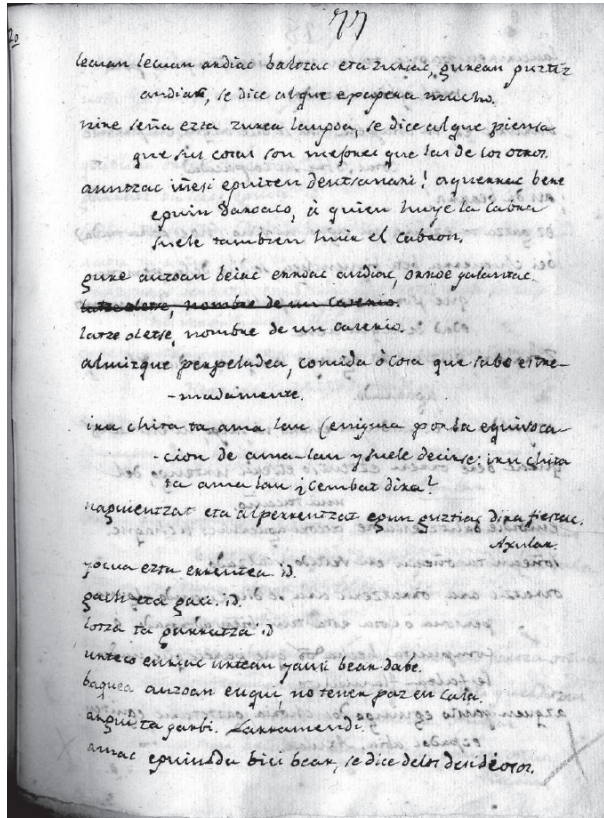 77
20
lecuan lecuan andiac baltzac eta zuriac, gurean purtiz
andiac, se dice al que exagera mucho.
nire seña ezta zurea lauspa, se dice al que piensa
que sus cosas son mejores que las de los otros.
auntzac iñesi eguiten deutsanari! aquerrac bere
eguin daroaco, à quien huye la cabra
suele tambien huir el cabron.
gure auzoan beinc erridac andiac, orrioc galantac.
latze oletse, nombre de un caserio.
latze oletse, nombre de un caserio.
almizque perpeladea, comida ò cosa que sabe estre-
-madamente.
iru chita ta ama lau (enigma por la equivoca-
-cion de ama-lau y suele decirse: iru chita
ta ama lau ¿cembat dira?
naguientzat eta alperrentzat egun guztiac dira fiestac.
Axular.
yocua ezta errentea. id.
gachi eta gaci. id.
lotza ta gurrutza id
urteco euriac urtean yausi bear dabe.
baquea auzoan euqui, no tener paz en casa.
argui ta garbi. Larramendi.
amac eguin da bici bear, se dice de los desidiosos.